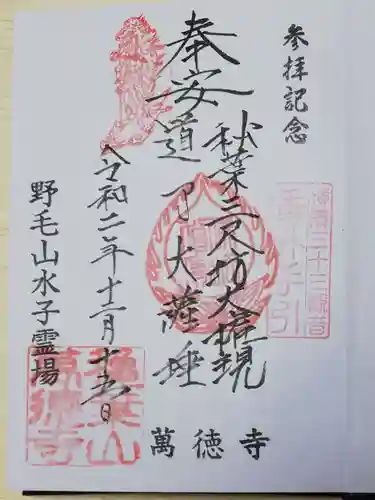 参拝記念
奉安
秋葉三尺坊大権現
道了大薩埵
令和二年十二月十五日
野毛山水子霊場
萬徳寺